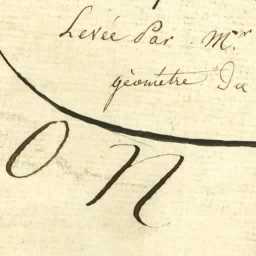 Levée Par Mr
géométre Du
ON